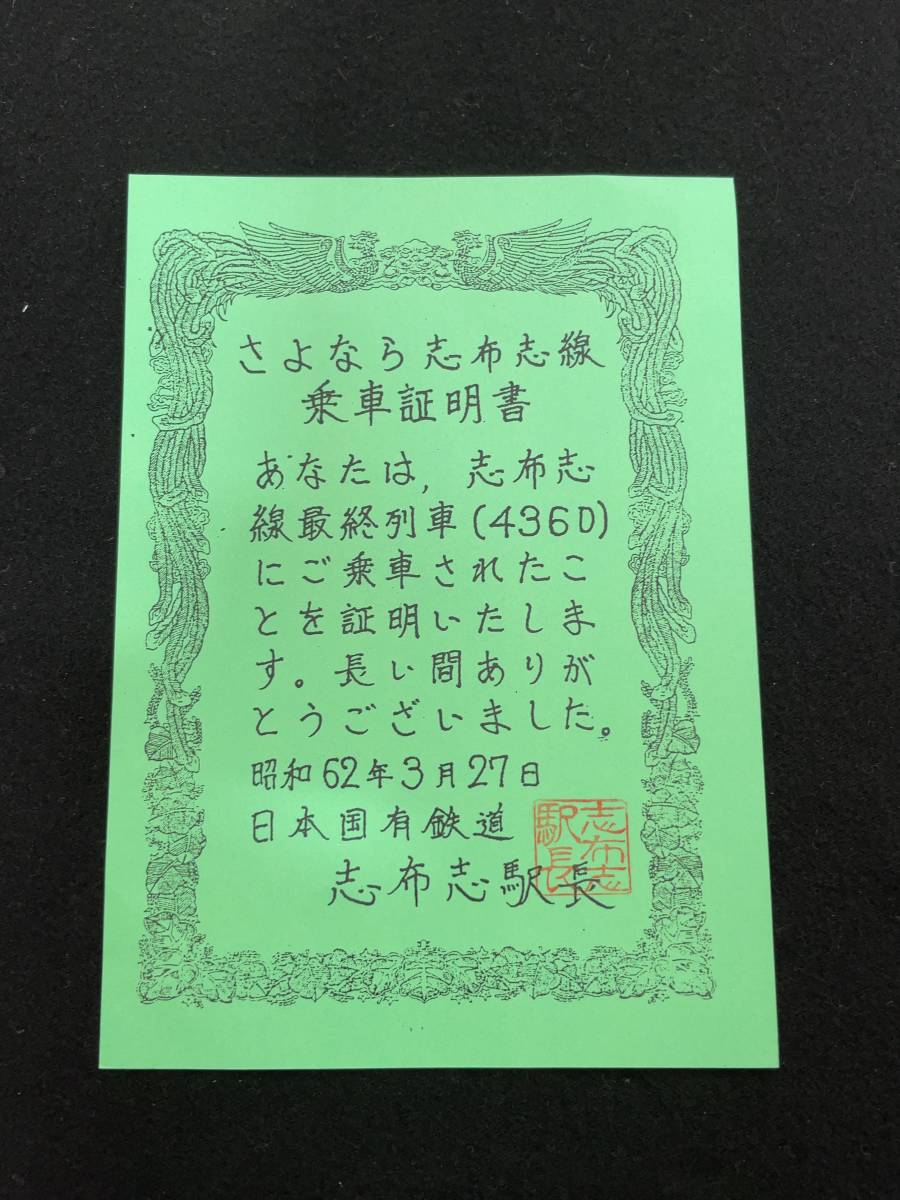 さよなら志布志線
乗車証明書
あなたは,志布志
線最終列車(436D)
にご乗車されたこ
とを証明いたしま
す。長い間ありが
とうございました。
昭和62年3月27日
日本国有鉄道
志布志駅長
志布志
駅長